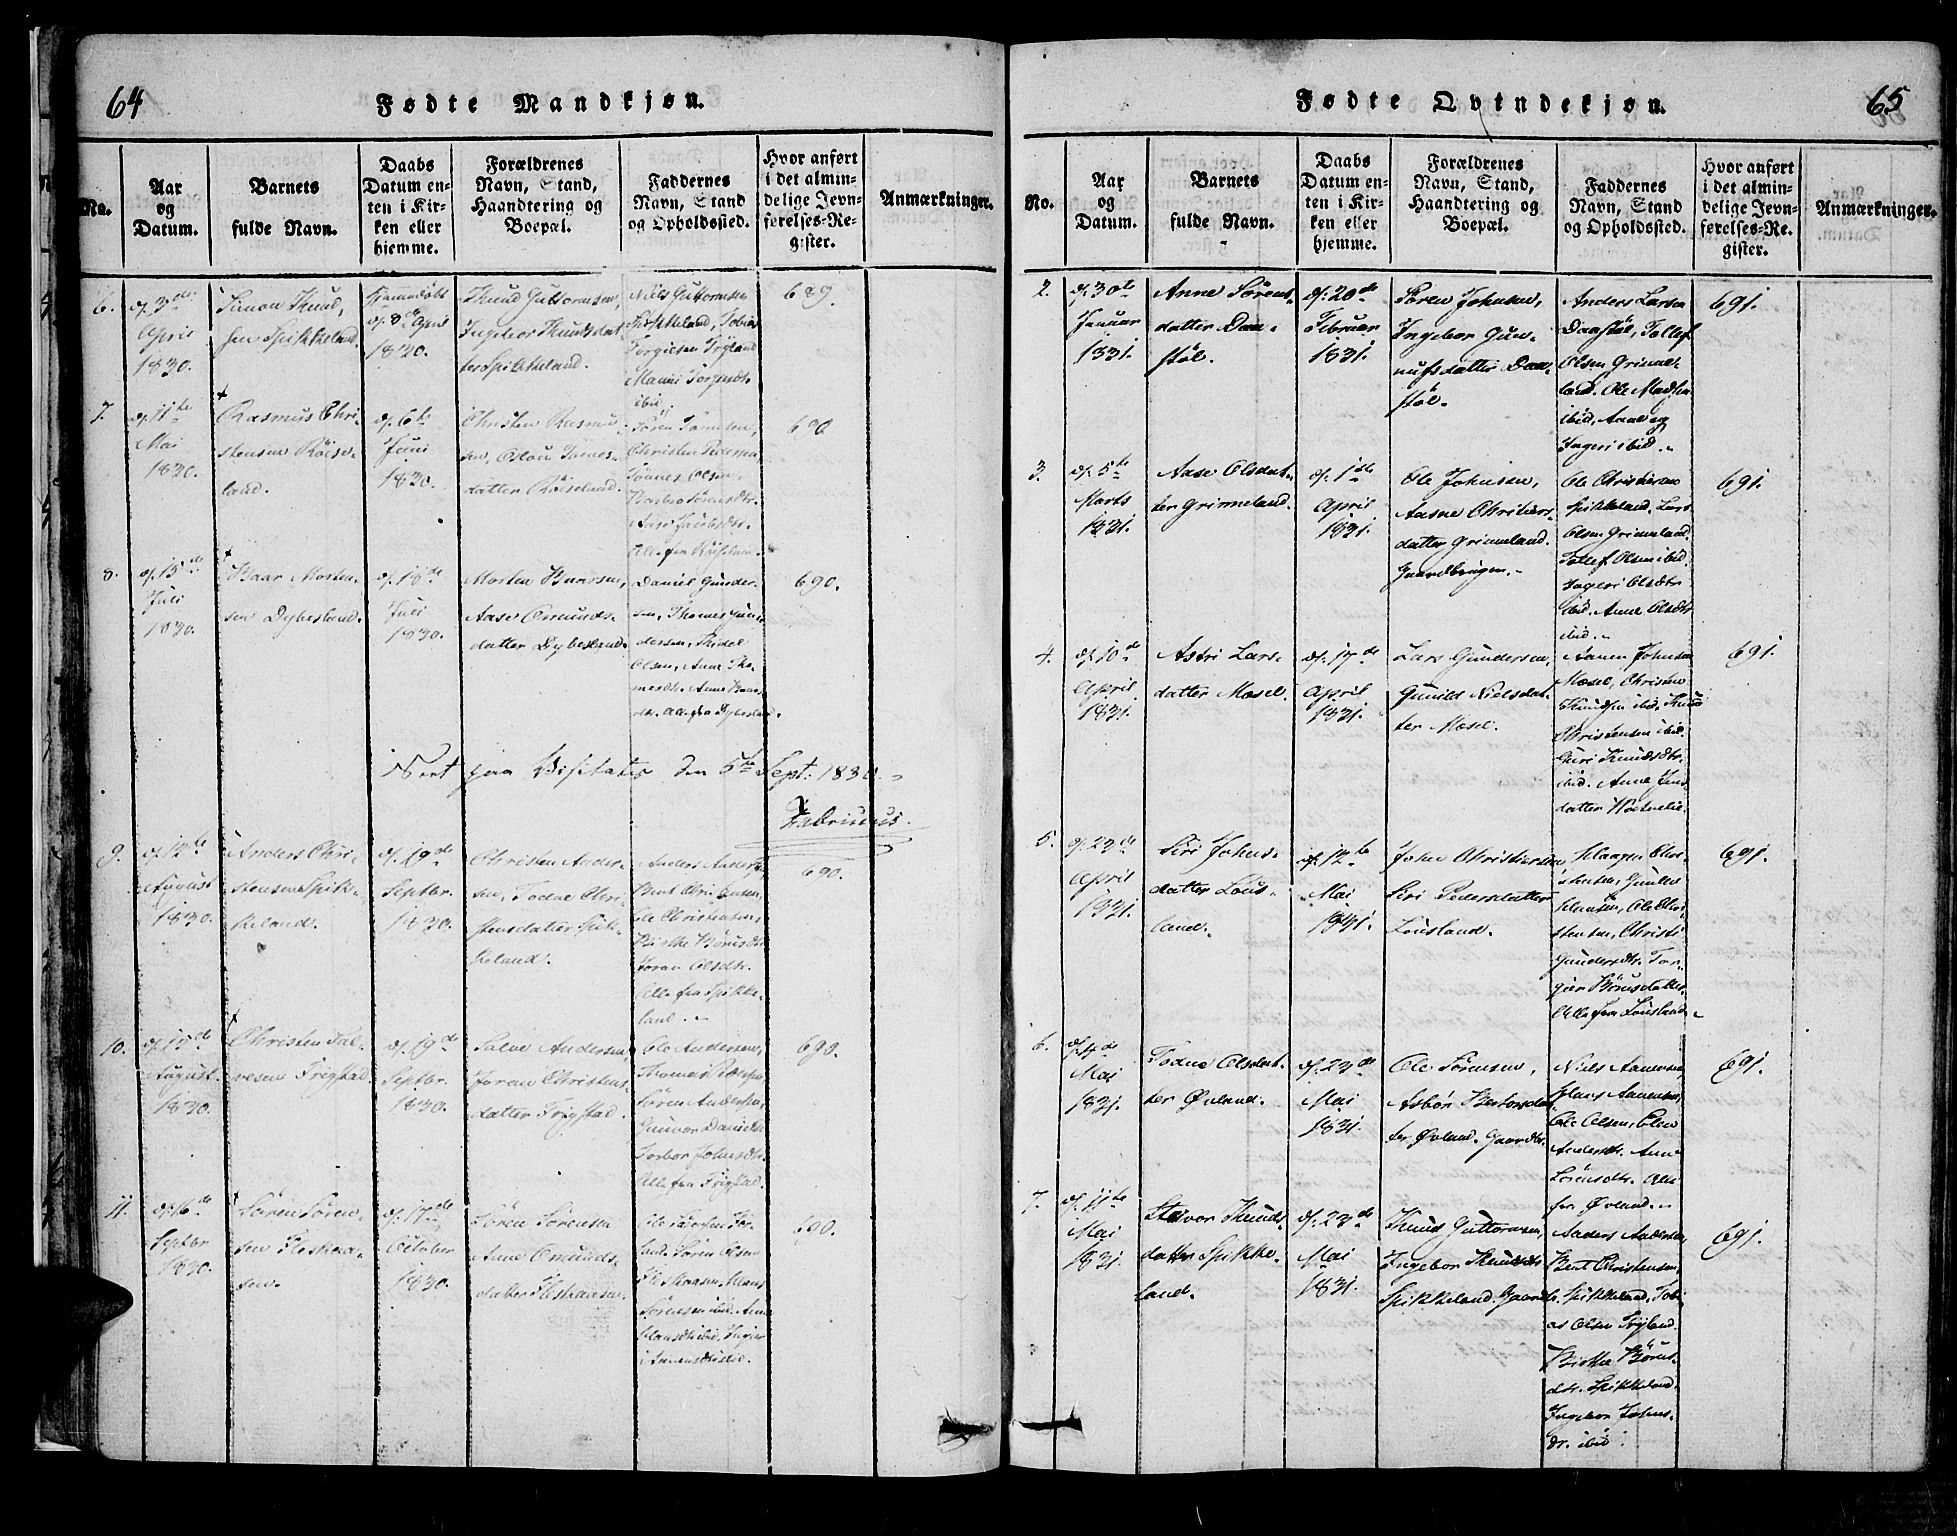 64
Fødte Mandkjøn.
No.
Aar
og
Datum.
Barnets
fulde Navn.
Daabs
Datum en-
ten i Kir-
ken eller
hjemme.
Forældrenes
Navn, Stand,
Haandtering og
Boepæl.
Faddernes
Navn, Stand
og Opholdssted.
Hvor anført
i det almin-
delige Jevn-
førelses-Re-
gister.
Anmærkninger.
6.
d. 3de
April
1830.
Simon Knud-
sen Spikkeland.
Hjemmedøbt
d. 8de April
1830.
Knud Guttormsen,
Ingebor Knudsdat-
ter Spikkeland.
Niels Guttormsen
Spikkeland, Tobias
Torgiesen Trygland
ibid.
689
7.
d. 11te
Mai
1830.
Rasmus Chri-
stensen Röise-
land.
d. 6te
Juni
1830.
Christen Rasmu-
sen, Oslou Tønnes-
datter Röiseland.
Christen Pedersen,
Tønnes Olsen
Aase Jacobsdtr.
Alle fra Röiseland.
690
8.
d. 15de
Juli
1830.
Baar Morten-
sen Dybesland.
d. 18de
Juli
1830.
Morten Baarsen,
Aase Omunds-
datter Dybesland.
Daniel Gunder-
sen, Thomas Gun-
dersen, Thidal
Olsen, Anne Tho-
mesdtr. Anne Baars-
dtr. Alle fra Dybesland.
690.
Seet paa Visitats den 5te Sept: 1830.
9.
d. 12te
August
1830.
Anders Chri-
stensen Spik-
keland.
d. 19de
Septbr.
1830.
Christen Ander-
sen, Todne Chri-
stensdatter Spik-
keland.
Anders Andersen
Bent Christensen,
Ole Christensen,
Birthe Börusdtr.
Joran Olsdtr.
Alle fra Spikke-
land.
690.
10.
August.
1830.
Christen Sal-
vesen Frigstad.
d. 19de
Septbr.
1830.
Salve Andersen,
Joren Christens-
datter Frigstad.
Ole Andersen,
Thomas Pedersen
Sören Andersen,
Gunvor Daniels-
Torbor Johnsdtr.
Alle fra Frigstad.
690.
11.
d. 16de
Septbr
1830.
Sören Sören-
sen Fleskaa-
sen.
d. 17de
October
1830.
Sören Sörensen
Anne Omunds-
datter Fleskaasen.
land. Sören Olsen
Fleskaasen, Hans
Sörensen ibid, Anne
Hansdtr ibid, Inger
690.
65
Fødte Qvindekjøn.
No.
Aar
og
Datum.
Barnets
fulde Navn.
Daabs
Datum en-
ten i Kir-
ken eller
hjemme.
Forældrenes
Navn, Stand,
Haandtering og
Boepæl.
Faddernes
Navn, Stand
og Opholdssted.
Hvor anført
i det almin-
delige Jevn-
førelses-Re-
gister.
Anmærkninger.
2.
d. 30te
Januar
1831.
Anne Sörens-
datter Daa-
stöl.
d. 20de
Februar
1831.
Sören Johnsen,
Ingebor Gun-
nufsdatter Daa-
stöl.
Anders Larsen
Daastöl, Tollef
Olsen Grimme-
land. Ole Madsen
ibid, Aase og
Ingeri ibid.
691.
3.
d. 5te
Marts
1831.
Aase Olsdat-
ter Grimeland.
d. 1ste
April
1831.
Ole Johnsen,
Aasne Christens-
datter Grimeland.
Gaardbrugere.
Ole Christensen
Spikkeland. Lars
Olsen Grimeland.
Tollef Olsen ibid
Ingeri Olsdtr
ibid. Anne Olsdtr
ibid.
691.
4.
d. 10de
April
1831.
Astri Lars-
datter Mosel.
d. 17de
April
1831.
Lars Gundersen,
Gunild Nielsdat-
ter Mosel.
Aanen Johnsen
Mosel, Christen
Knudsen ibid. Knud
Christensen ibid.
Guri Knudsdtr.
ibid. Anne Jens-
datter
691.
5.
d. 23de
April
1831.
Siri Johns-
datter Löus-
land.
d. 12te
Mai
1831.
John Christensen
Siri Pedersdatter
Löusland.
Haagen Chri-
stensen, Gunder
Hansen, Ole Chri-
stensen, Christi
Gundersdtr. Tor-
gier Börusdatter
Alle fra Löusland.
691.
6.
d. 4de
Mai
1831.
Todne Olsdat-
ter Øvland.
d. 23de
Mai
1831.
Ole Sörensen,
Asbör Bertorsdat-
ter Øvland. Gaardbr.
Niels Aanensen,
Hans Aanensen,
Ole Olsen, Elen
Andersdtr. Anne
Sörensdtr. Alle
fra Øvland.
691.
7.
d. 11te
Mai
1831.
Stavor Knuds-
datter Spikke-
land.
d. 23de
Mai
1831.
Knud Guttormsen,
Ingebor Knudsdtr
Spikkeland. Gaardbr.
Anders Andersen,
Bent Christensen,
Spikkeland. Tobi-
as Olsen Trygland
Birthe Börus-
dtr. Spikkeland.
Ingebor Johns-
dr. ibid.
691.